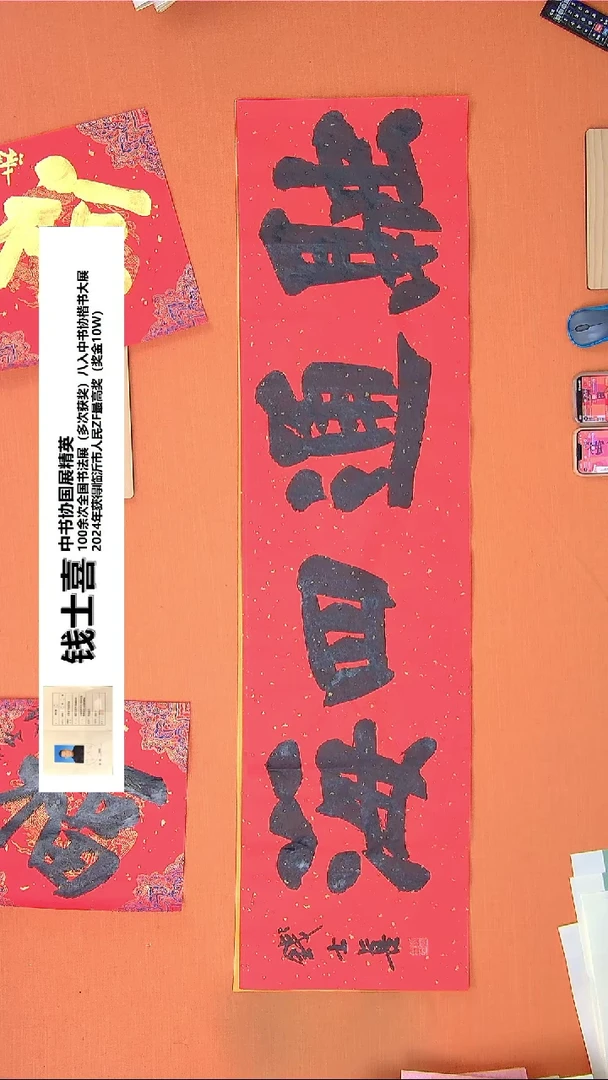 財通四海
錢士喜
钱士喜
中书协国展精英
100余次全国书法展（多次获奖）八入中书协楷书大展
2024年获得临沂市人民ZF最高奖（奖金10W）
福